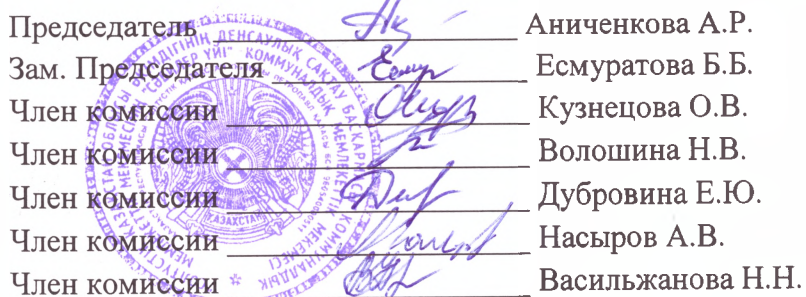 Председатель Аниченкова А.Р.
Зам. Председателя Есмуратова Б.Б.
Член комиссии Кузнецова О.В.
Член комиссии Волошина Н.В.
Член комиссии Дубровина Е.Ю.
Член комиссии Насыров А.В.
Член комиссии Васильжанова Н.Н.
ДЕНСАУЛЫҚ САҚТАУ
КОММУНАЛДЫҚ
ҚАЗАХСТАН